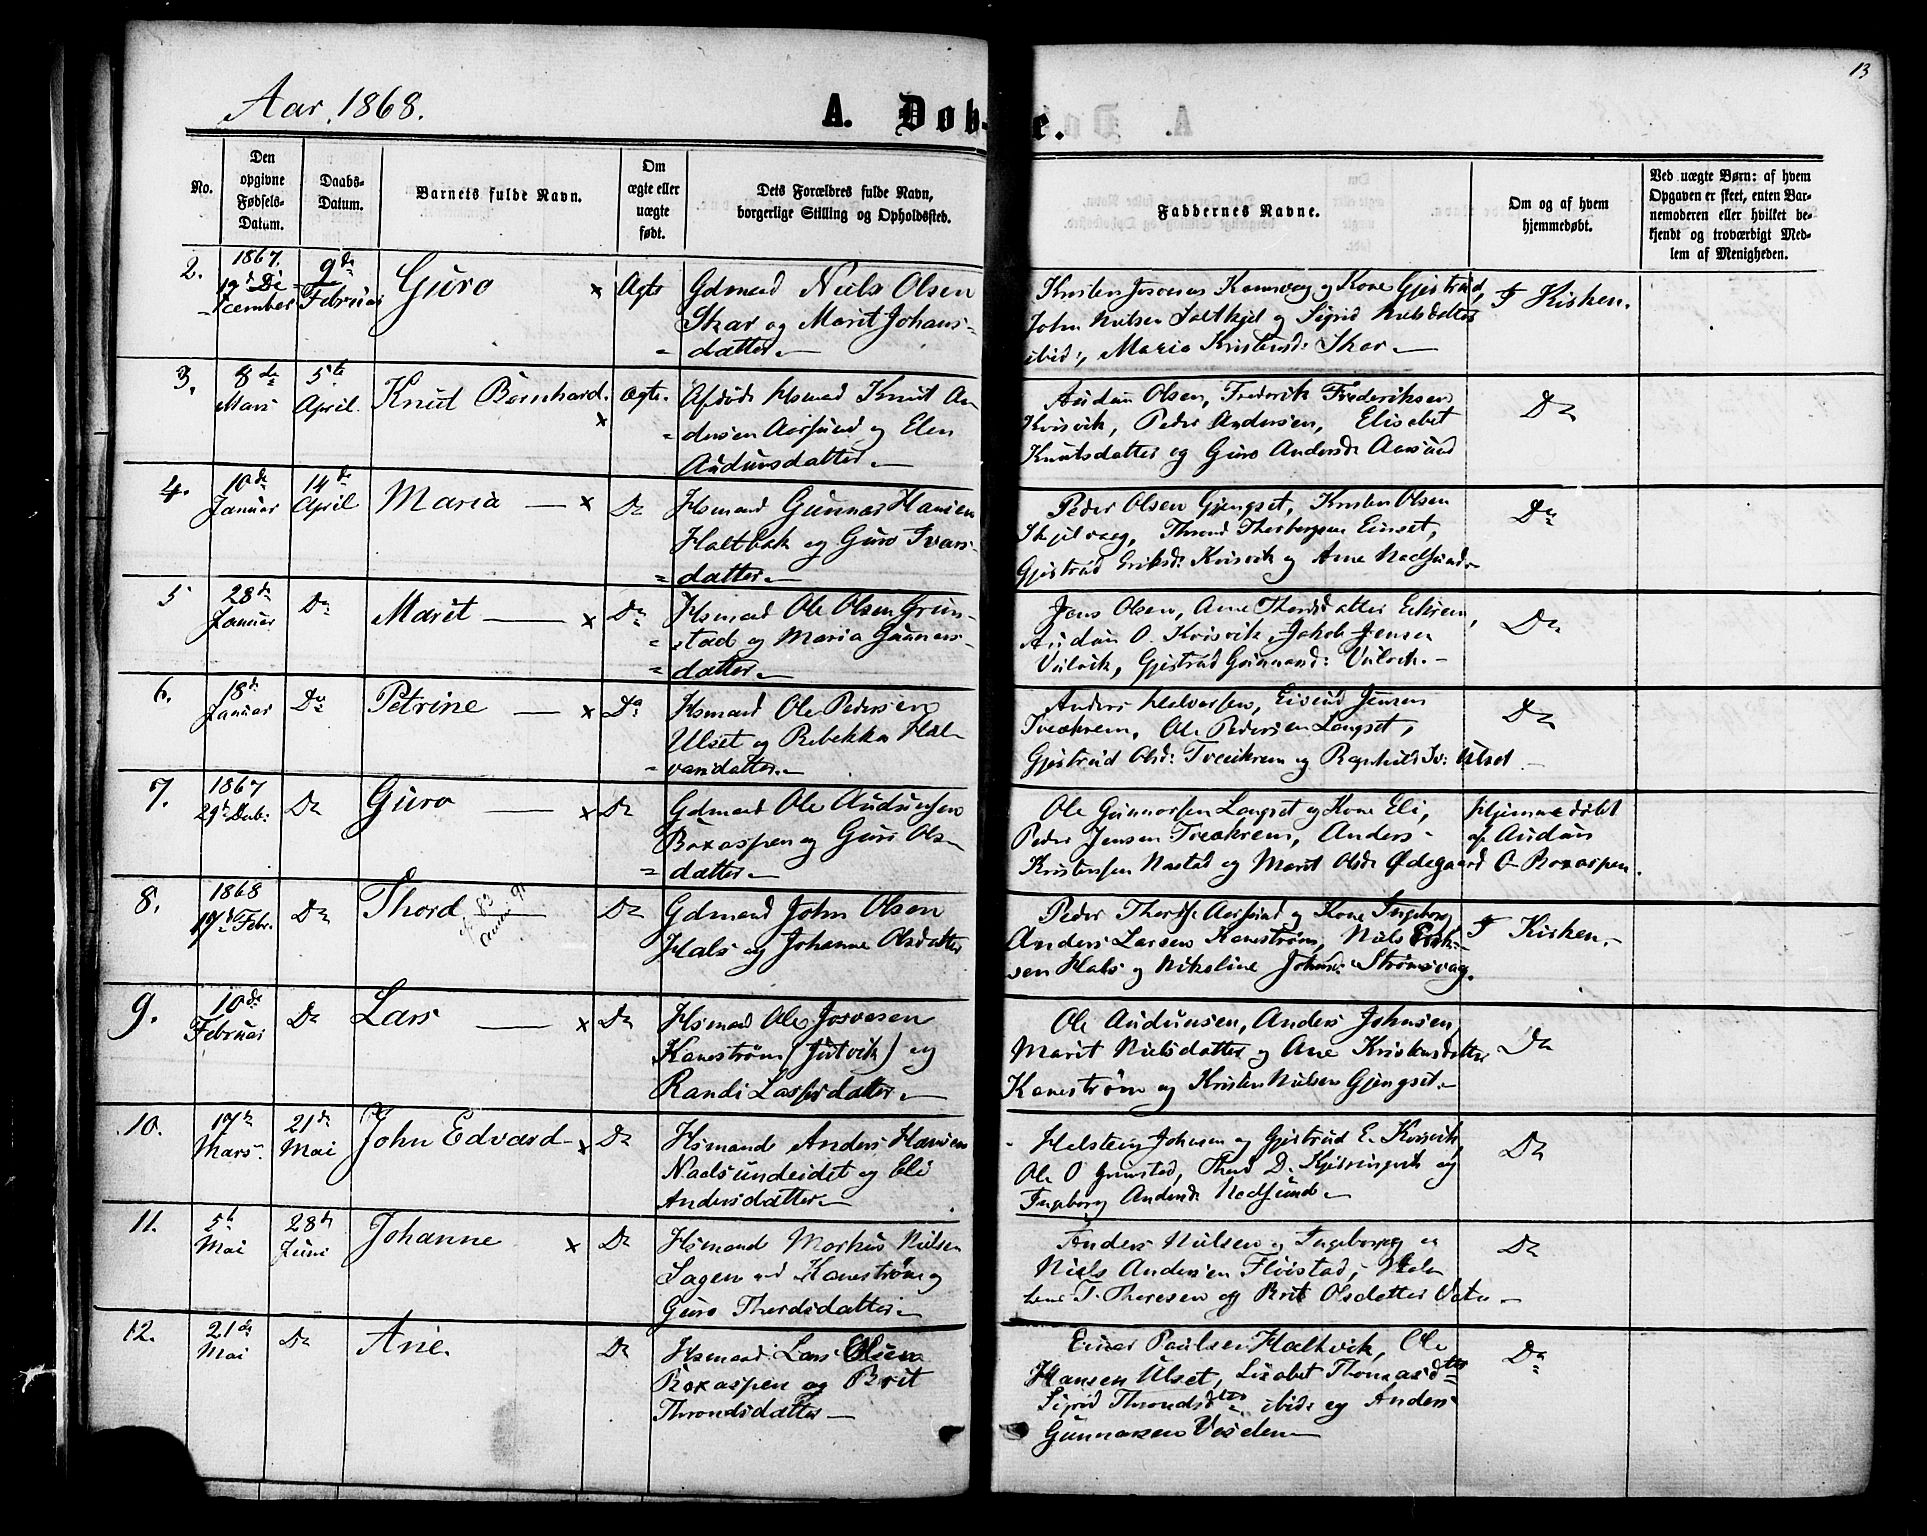 13
Aar 1868.
A. Døb-
te.
No.
Den opgivne Fødsels-Datum.
Daabs-Datum.
Barnets fulde Navn.
Om ægte eller uægte født.
Dets Forældres fulde Navn, borgerlige Stilling og Opholdssted.
Faddernes Navne.
Om og af hvem hjemmedøbt.
Ved uægte Børn: af hvem Opgaven er skeet, enten Bar-nemoderen eller hvilket be-kjendt og troværdigt Med-lem af Menigheden.
2. 1867. December 9de Februar Guro x Ægte
Gdmand Niels Olsen
Skar og Marit Johans-
datter.
Kristen Kanesvaag og Kone Gjertrud,
John Nielsen Saltkjel og Sigrid Nielsdatter
ibid:, Maria Kristensd: Skar
I Kirken.
3. 8de Mars 5te April Knut Bernhard. x Ægte.
Afdøde Hsmand Knut An-
dersen Aarsund og Elen
Audunsdatter
Audun Olsen, Frederik Frederiksen
Kvisvik, Peder Andersen, Elisabet
Knutsdatter og Guro Andersd: Aarsund
Do
4. 10de Januar 14de April Maria x Do
Hsmand Gunnar Hansen
Holtbak og Guro Ivars-
datter
Peder Olsen Gjengset, Kristen Olsen
Skjelvaag, Thrond Thorbergsen Einset,
Gjertrud Eriksd: Kvisvik og Ane Nadsund
Do
5 28de Januar Do Marit x Do
Hsmand Ole Olsen Grim-
stad og Maria Gunnars-
datter
Jens Olsen, Ane Thordsdatter Eikrem,
Audun O. Kvisvik, Jakob Jensen
Vulvik, Gjertrud Gunnarsd: Vulvik.
Do
6. 18de Januar Do Petrine x Do
Hsmand Ole Pedersen
Ulset og Rebekka Hal-
varsdatter
Anders Halvorsen, Eivind Jensen
Treekrem, Ole Pedersen Langset,
Gjertrud Olsd: Treekrem og Ragnhild Iv: Ulset
Do
7. 1867 29de Decb: Do Guro x Do
Gdmand Ole Audunsen
Boxaspen og Guro Ols-
datter
Ole Gunnarsen Langset og Kone Eli,
Peder Jensen Treekrem, Anders
Kristensen Nastad og Marit Olsd: Ødegaard
Hjemmedøbt
af Audun
O. Boxaspen.
8. 1868 17de Febr. Do Thord Do
Gdmand John Olsen
Hals og Johanne Olsdatter
Peder Thords: Aarsund og Kone Ingeborg
Anders Larsen Kanestrøm, Niels Erik-
sen Hals og Nikoline Johnsd: Strømsvag.
I Kirken.
9. 10de Februar Do Lars x Do
Hsmand Ole Josvasen
Kanestrøm (Jutvik) og
Randi Larsdatter
Ole Audunsen, Anders Johnsen,
Marit Nielsdatter og Ane Kristensdatter
Kanestrøm og Kristen Nielsen Gjengset.
Do
10. 17de Mars 21de Mai John Edvard x Do
Hsmand Anders Hansen
Nadsundeidet og Eli
Andersdatter
Halstein Johnsen og Gjertrud E. Kvisvik,
Ole O. Grimstad, Thord D. Kjelsringvik og
Ingeborg Andersd: Nadsund
Do
11. 5te Mai 28de Juni Johanne x Do
Hsmand Markus Nielsen
Sagen ved Kanestrøm og
Guro Thordsdatter
Anders Nielsen og Ingeborg og
Niels Andersen Fløistad, Hele
T. Thoresen og Brit Olsdatter
Do
12. 21de Mai Do Ane. Do
Hsmand Lars Olsen
Boxaspen og Brit
Throndsdatter
Einar Paulsen Holtvik, Ole
Hansen Ulset, Lisabet Thomasdtr
Sigrid Throndsdtr ibid: og Anders
Gunnarsen
Do